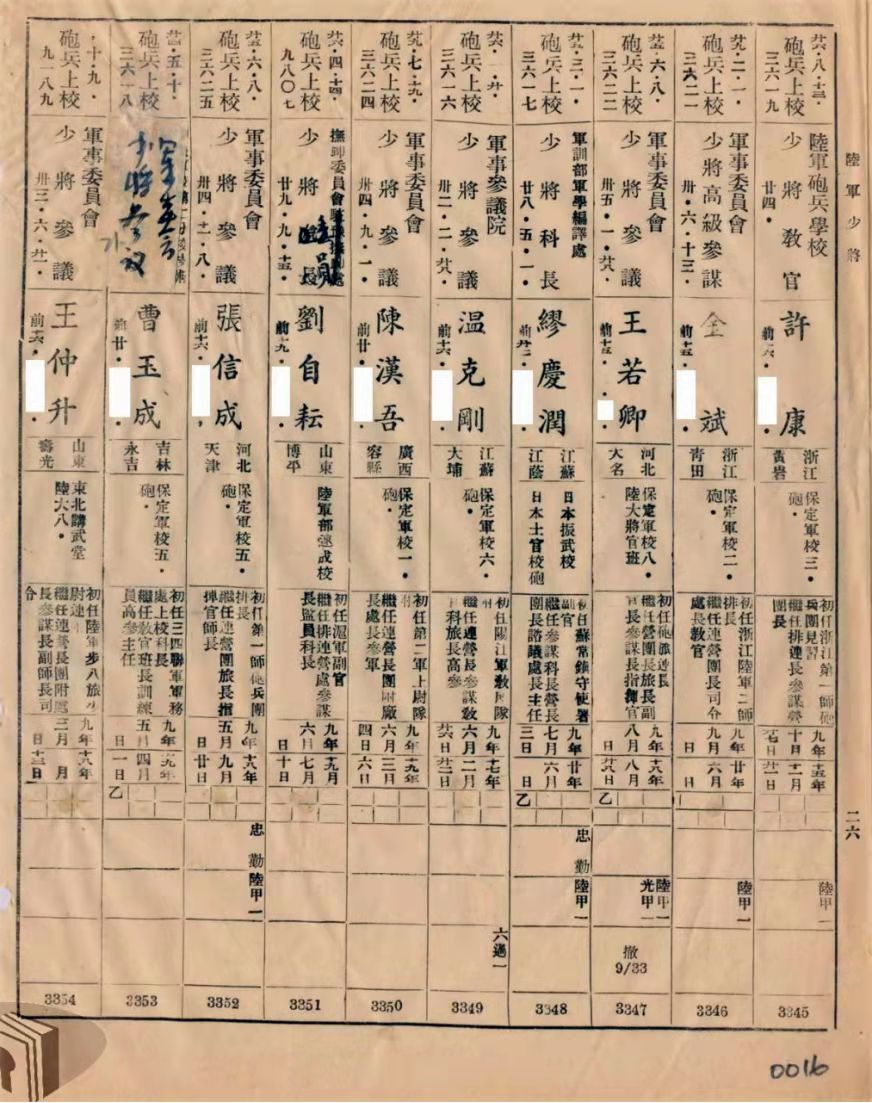 陸軍少將
二六
三六一九
砲兵上校
陸軍砲兵學校
少將教官
廿四・
許康
浙江
黃岩
保定軍校三・
砲・
初任浙江第一師砲
兵團見習
繼任排連長參謀營
團長
九年
十月
十五年
十一月
陸甲一
3345
三六二一
砲兵上校
軍事委員會
少將高級參謀
卅・六・十三・
金斌
浙江
青田
保定軍校二・
砲・
初任浙江陸軍二師
排長
繼任連營團長司令
處長教官
九年
九月
日
廿年
六月
日
陸甲一
3346
三六二二
砲兵上校
軍事委員會
少將參議
卅五・一・廿八・
王若卿
河北
大名
保定軍校八・
陸大將官班
初任砲旅連長
繼任營團長旅長副
官長參謀長指揮官
九年
八月
日
十八年
八月
廿八日
乙
陸甲一
光甲一
撤
9/33
3347
三六一七
砲兵上校
軍訓部軍學編譯處
少將科長
廿八・五・一・
繆慶潤
江蘇
江蔭
日本振武校
日本士官校砲
初任蘇常鎮守使署
副官
繼任參謀科長營長
團長諮議處長主任
九年
七月
三日
廿年
六月
日
乙
忠勤
陸甲一
3348
三六一六
砲兵上校
軍事參議院
少將參議
卅二・二・廿八・
溫克剛
江蘇
大埔
保定軍校六・
砲・
初任陽江軍敎導隊
附
繼任連營長參謀敎
科旅長高參
九年
六月
廿六日
十七年
二月
廿二日
六過一
3349
三六二四
砲兵上校
軍事委員會
少將參議
卅四・九・一・
陳漢吾
廣西
容縣
保定軍校一・
砲・
初任第二軍上尉隊
附
繼任連營長團附廠
長處長參軍
九年
六月
四日
十九年
三月
六日
3350
九八〇七
砲兵上校
少將
廿九・九・十五・
劉自耘
山東
博平
陸軍部速成校
初任滬軍副官
繼任排連營處參謀
長監員科長
九年
六月
日
十九月
七月
十日
3351
三六二五
砲兵上校
軍事委員會
少將參議
卅四・十一・八・
張信成
河北
天津
保定軍校五・
砲・
初任第一師砲兵團
排長
繼任連營團旅長指
揮官師長
九年
五月
日
十八年
九月
廿日
忠勤
陸甲一
3352
三六一八
砲兵上校
軍委會
少將參議
曹玉成
吉林
永吉
保定軍校五・
砲・
初任三四聯軍軍務
處上校科長
繼任敎官班長訓練
員高參主任
九年
五月
日
十九年
四月
一日
乙
3353
九一八九
砲兵上校
軍事委員會
少將參議
卅三・六・廿一・
王仲升
山東
壽光
東北講武堂
陸大八・
初任陸軍步八旅少
尉連附
繼任連營長團附處
長參謀長副師長司
令
九年
三月
日
十八年
月
十三日
3354
0016